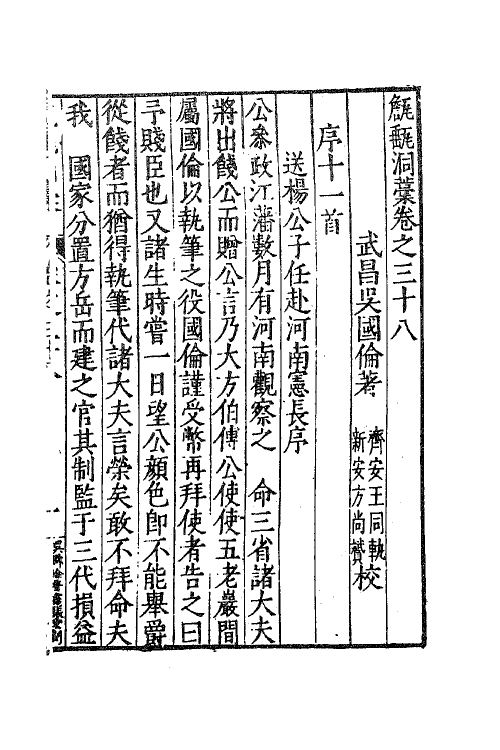 甔甀洞藁卷之三十八
武昌吳國倫著 齊安王同軌 新安方尚贇 校
序十一首
送楊公子任赴河南憲長序
公叅政江藩數月有河南觀察之 命三省諸大夫
將出餞公而贈公言乃大方伯傳公使使五老巖間
屬國倫以執筆之役國倫謹受幣再拜使者告之曰
予賤臣也又諸生時嘗一日望公顏色即不能舉爵
從餞者而猶得執筆代諸大夫言榮矣敢不拜命夫
我 國家分置方岳而建之官其制監于三代損益